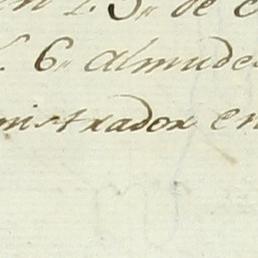 de
6 Almude
nistrador en